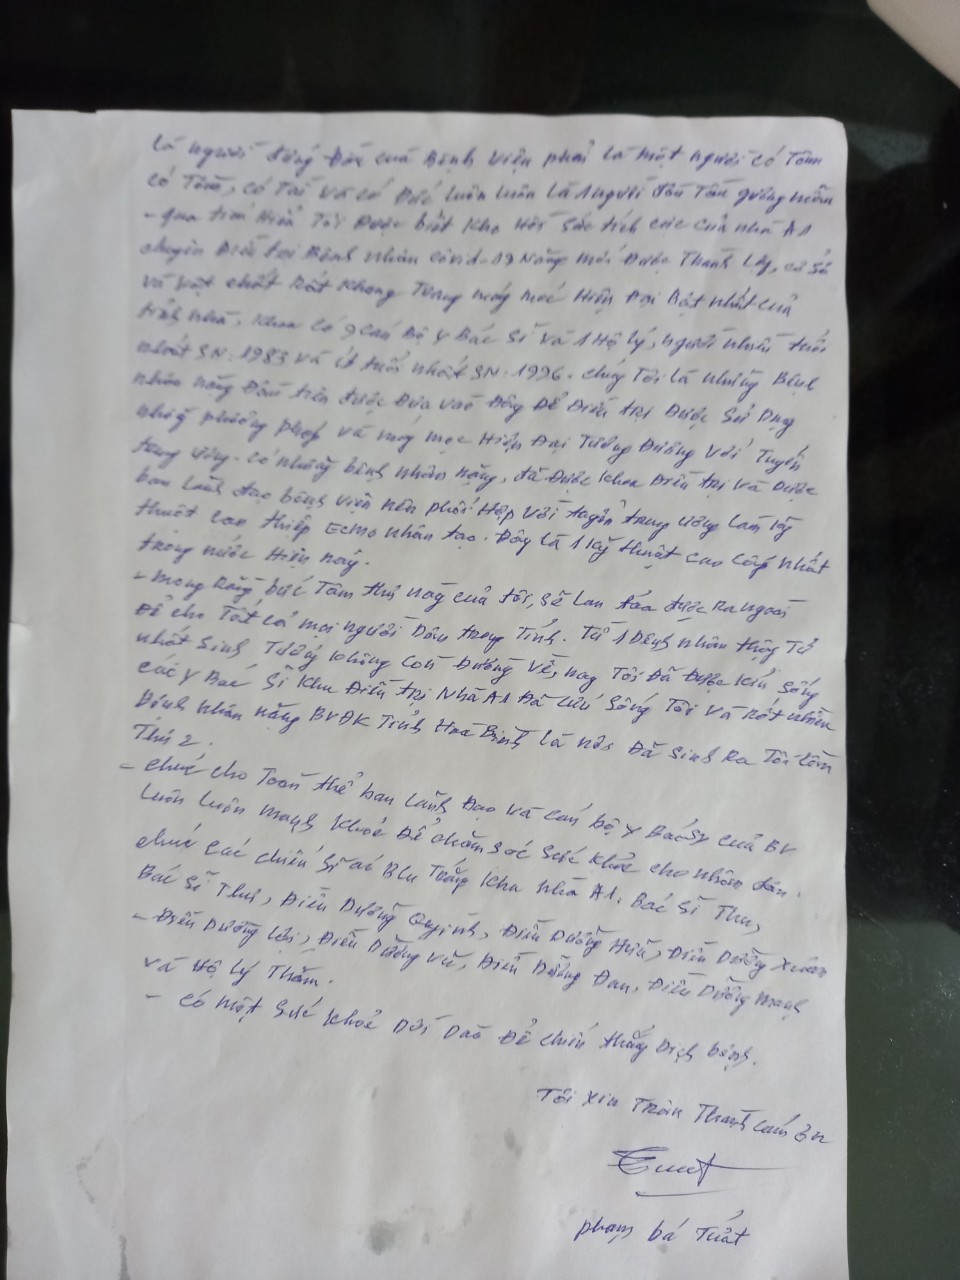 là người đứng Đầu của Bệnh viện phải là một người có Tâm
có Tầm, có Tài và có Đức luôn luôn là 1 người đầu Tàu gương mẫu
- qua tìm Hiểu Tôi Được biết Khoa Hồi Sức tích cực của nhà A1
chuyên Điều trị Bệnh nhân covid-19 Nặng mới Được Thành Lập, cơ Sở
và vật chất Rất Khang Trang máy móc Hiện Đại Bật nhất của
tỉnh nhà, Khoa có 9 cán Bộ y Bác Sĩ và 1 Hộ lý, người nhiều tuổi
nhất SN: 1983 và ít tuổi nhất SN: 1996. chúng Tôi là những Bệnh
nhân nặng Đầu tiên được Đưa vào Đây Để Điều trị Được Sử Dụng
những phương pháp và máy mọc Hiện Đại Tương Đương Với Tuyến
trung ương. có những bệnh nhân nặng, đã Được Khoa Điều trị và Được
ban Lãnh đạo bệnh viện nên phối Hợp Với tuyến trung ương làm
thuật can thiệp Ecmo nhân tạo. Đây là 1 kỹ thuật cao cấp nhất
trong nước Hiện nay.
- mong Rằng bức Tâm thư này của tôi, sẽ lan tỏa được Ra ngoài
Để cho Tất cả mọi người Dân trong Tỉnh. Từ 1 Bệnh nhân thập Tử
nhất Sinh Tưởng không còn Đường Về, nay Tôi Đã Được
các y Bác Sĩ Khu Điều trị Nhà A1 Đã Cứu Sống Tôi và Rất nhiều
Bệnh nhân nặng BVĐK Tỉnh Hòa Bình là nơi Đã Sinh Ra Tôi lần
Thứ 2.
- chúc cho Toàn thể ban Lãnh Đạo và cán bộ y Bác Sỹ của BV
Luôn Luôn mạnh Khoẻ Để chăm sóc Sức Khỏe cho nhân dân.
chúc các chiến Sĩ áo Blu Trắng Khu nhà A1. Bác Sĩ Thu,
Bác Sĩ Thư, Điều Dưỡng Quỳnh, Điều Dưỡng Hiếu, Điều Dưỡng Xuân
- Điều Dưỡng Lợi, Điều Dưỡng Vũ, Điều Dưỡng Đan, Điều Dưỡng Mạnh
và Hộ Lý Thắm.
- có một Sức Khoẻ Dồi Dào Để chiến thắng Dịch bệnh.
Tôi Xin Trân Thành cảm ơn
phạm bá Tuất